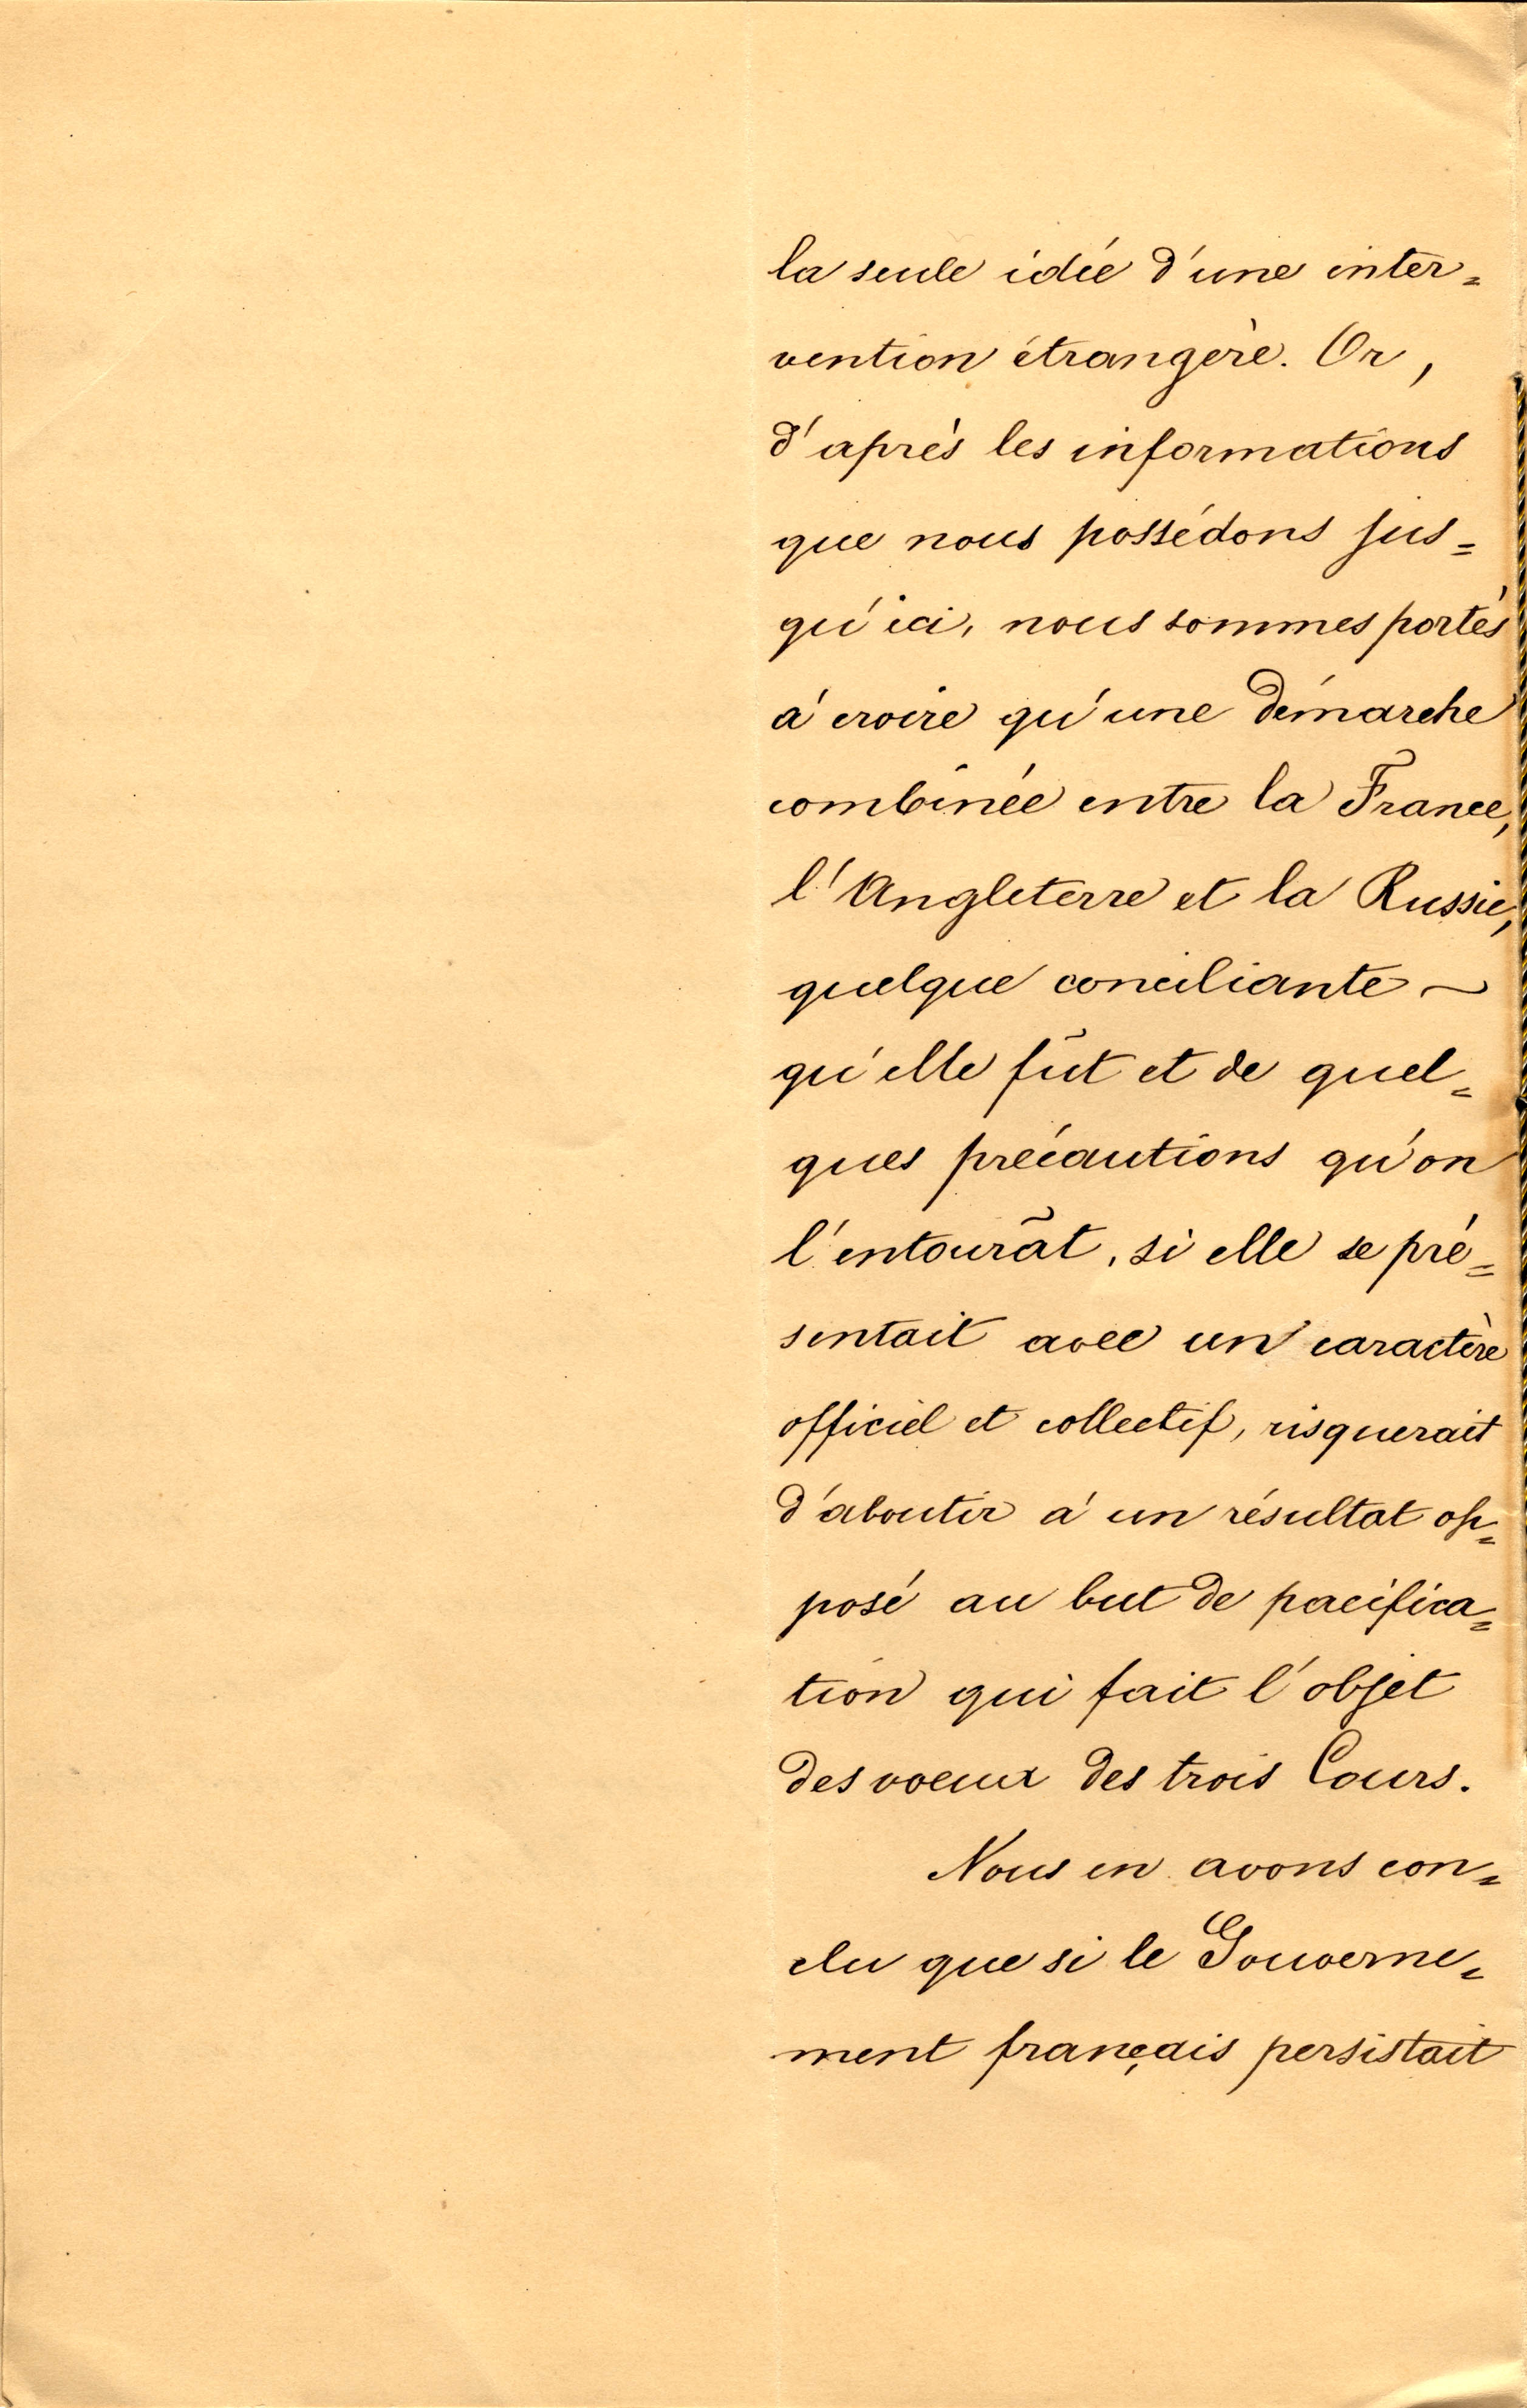 la seule idée d'une inter=
vention étrangère. Or,
d'après les informations
que nous possédons jus=
qu'ici, nous sommes portés
à croire qu'une démarche
combinée entre la France,
l'Angleterre et la Russie,
quelque conciliante –
qu'elle fût et de quel=
ques précautions qu'on
l'entourât, si elle se pré=
sentait avec un caractère
officiel et collectif, risquerait
d'aboutir à un résultat op=
posé au but de pacifica=
tion qui fait l'objet
des voeux des trois Cours.
Nous en avons con=
clu que si le Gouverne=
ment français persistait